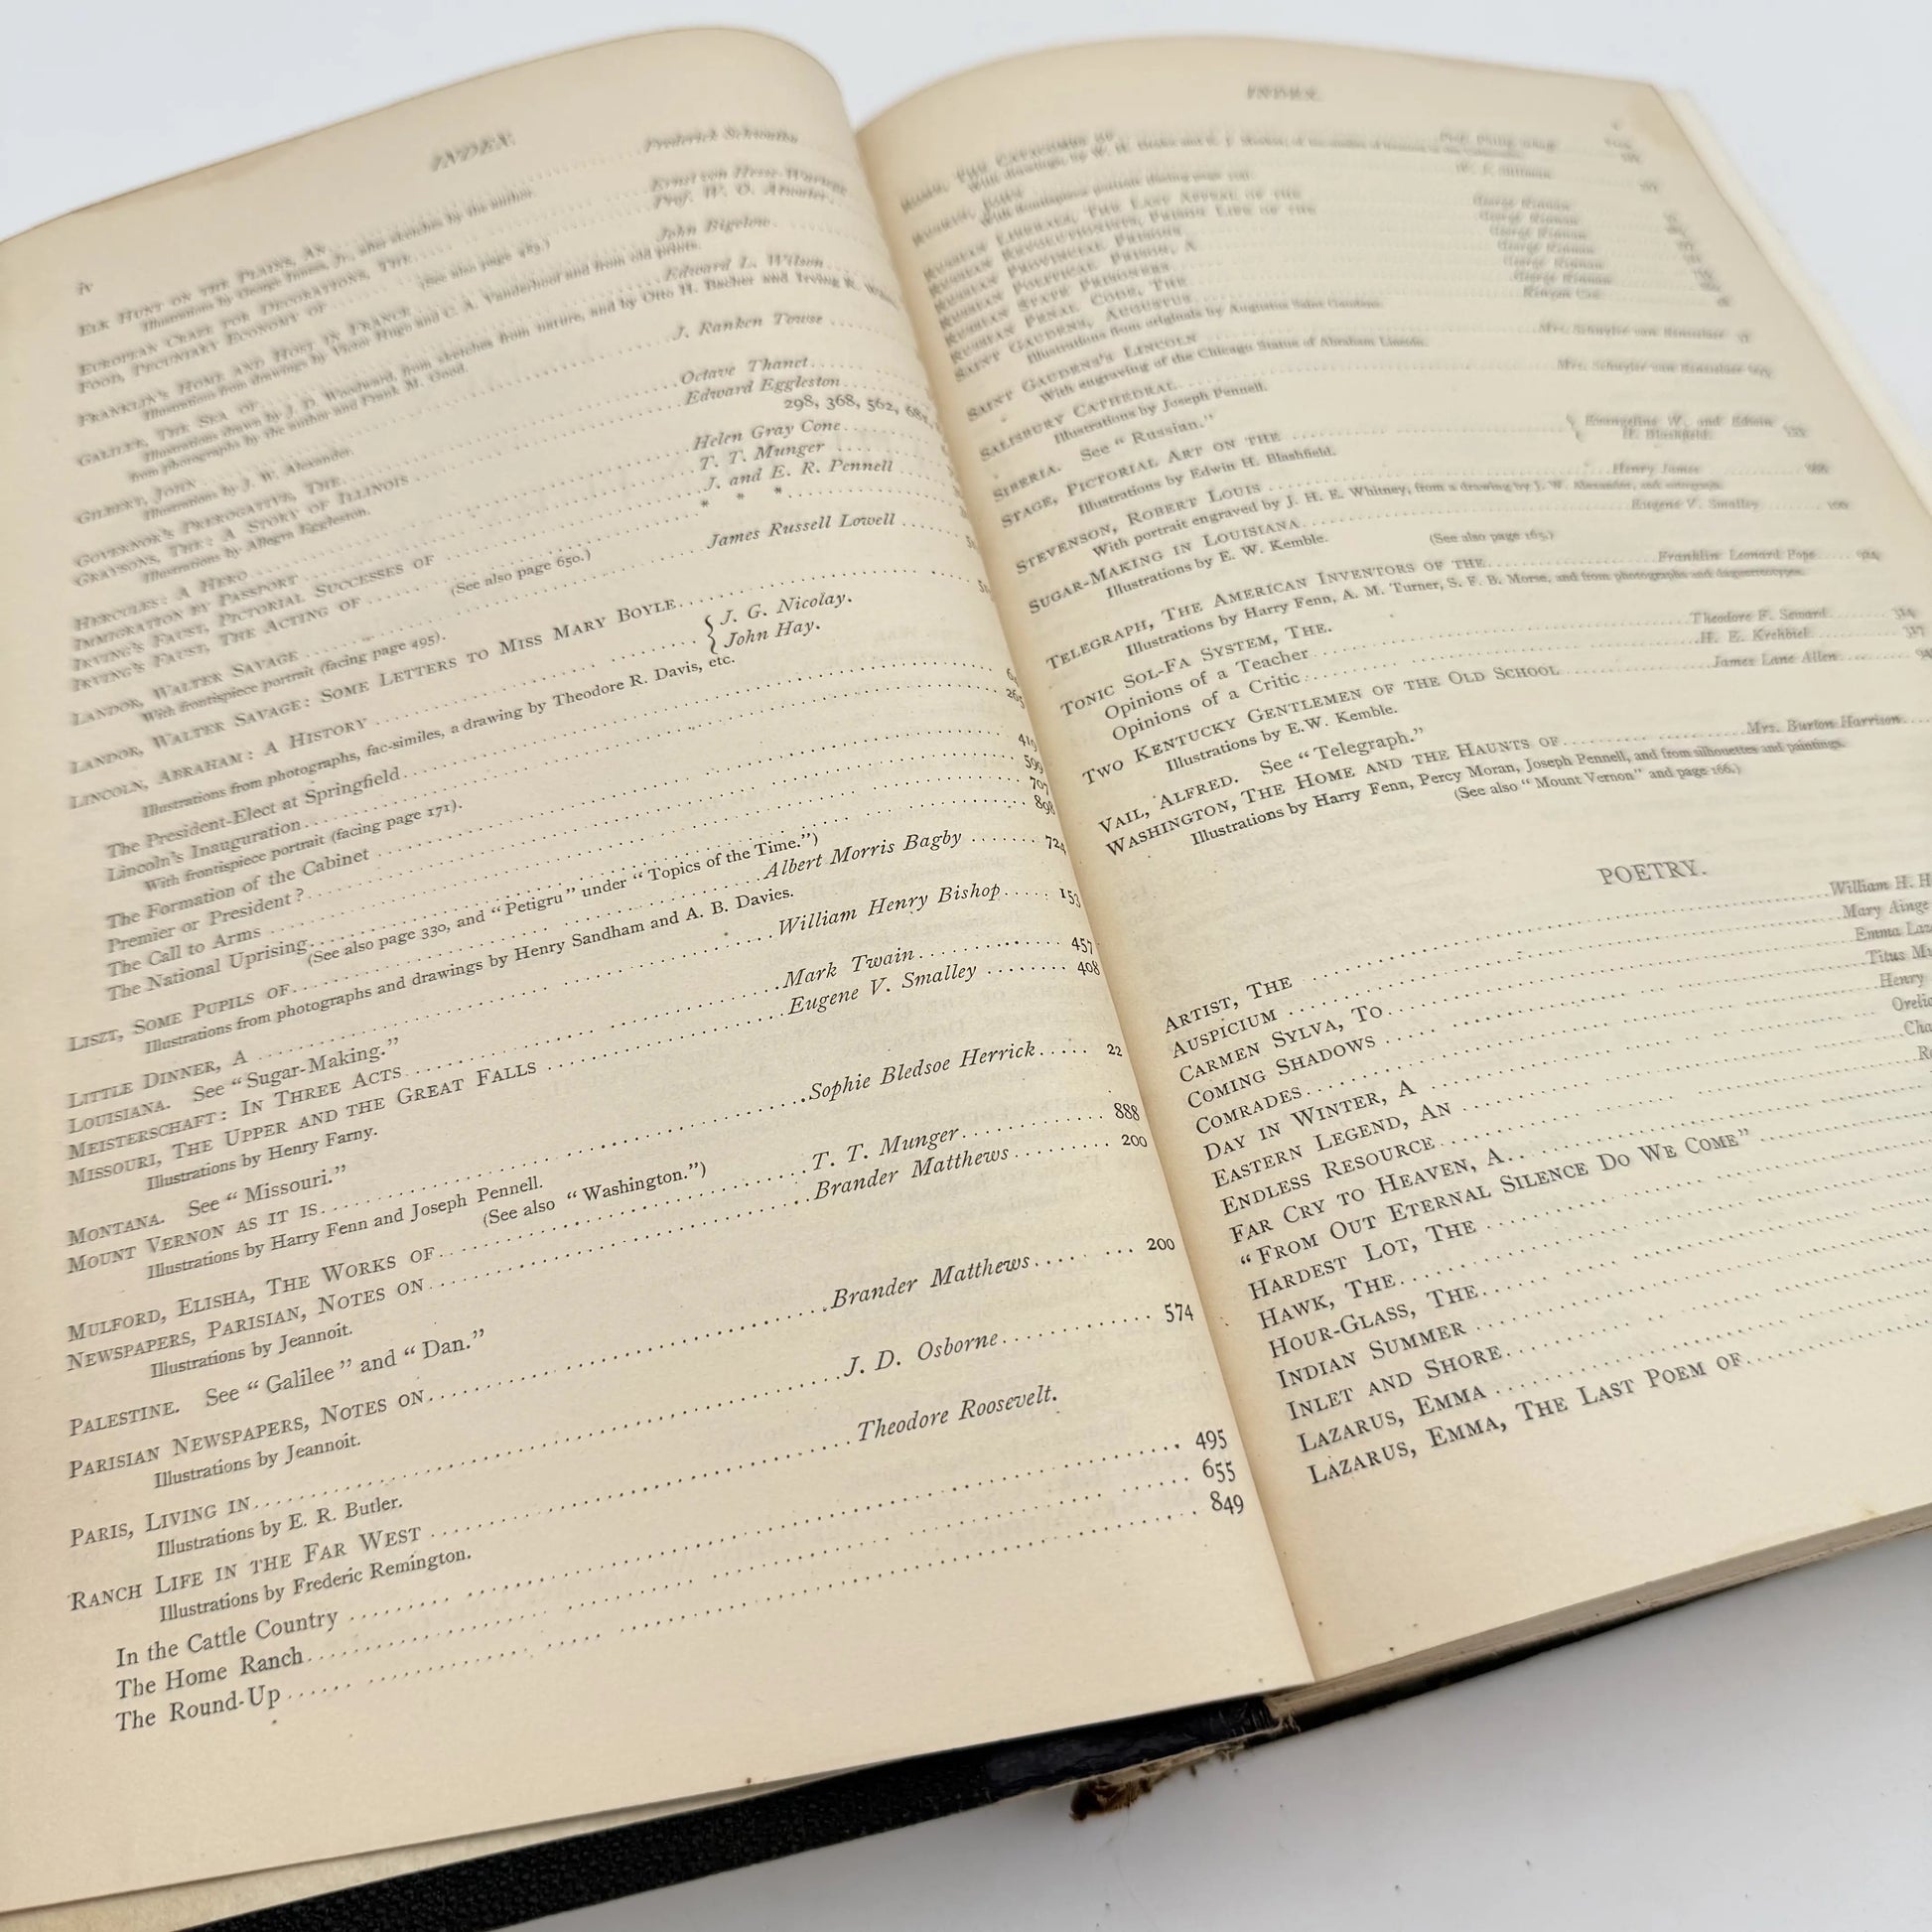 iv
INDEX.
Frederick Schwatka
ELK HUNT ON THE PLAINS, AN
Illustrations by George Inness, Jr., after sketches by the author.
EUROPEAN CRAZE FOR DECORATIONS, THE Ernst von Hesse-Wartegg
FOOD, PECUNIARY ECONOMY OF Prof. W. O. Atwater
(See also page 485.)
FRANKLIN'S HOME AND HOST IN FRANCE John Bigelow
Illustration from drawings by Victor Hugo and C. A. Vanderhoof and from old prints.
GALILEE, THE SEA OF Edward L. Wilson
Illustrations drawn by J. D. Woodward, from sketches from nature, and by Otto H. Bacher and Irving R.
from photographs by the author and Frank M. Good.
GILBERT, JOHN J. Ranken Towse
Illustrations by J. W. Alexander.
GOVERNOR'S PREROGATIVE, THE Octave Thanet
GRAYSONS, THE: A STORY OF ILLINOIS Edward Eggleston
Illustrations by Allegra Eggleston. 298, 368, 562,
HERCULES: A HERO Helen Gray Cone
IMMIGRATION BY PASSPORT T. T. Munger
IRVING'S FAUST, PICTORIAL SUCCESSES OF J. and E. R. Pennell
IRVING'S FAUST, THE ACTING OF * * *
(See also page 650.)
LANDOR, WALTER SAVAGE James Russell Lowell
With frontispiece portrait (facing page 495).
LANDOR, WALTER SAVAGE: SOME LETTERS TO MISS MARY BOYLE
LINCOLN, ABRAHAM: A HISTORY { J. G. Nicolay.
John Hay.
Illustrations from photographs, fac-similes, a drawing by Theodore R. Davis, etc.
The President-Elect at Springfield
Lincoln's Inauguration 265
With frontispiece portrait (facing page 171).
The Formation of the Cabinet 419
Premier or President? 599
The Call to Arms 707
The National Uprising 898
(See also page 330, and “Petigru” under “Topics of the Time.”)
LISZT, SOME PUPILS OF Albert Morris Bagby 724
Illustrations from photographs and drawings by Henry Sandham and A. B. Davies.
LITTLE DINNER, A William Henry Bishop 153
LOUISIANA. See “Sugar-Making.”
MEISTERSCHAFT: IN THREE ACTS Mark Twain 457
MISSOURI, THE UPPER AND THE GREAT FALLS Eugene V. Smalley 408
Illustrations by Henry Farny.
MONTANA. See “Missouri.”
MOUNT VERNON AS IT IS Sophie Bledsoe Herrick 22
Illustrations by Harry Fenn and Joseph Pennell.
(See also “Washington.”)
MULFORD, ELISHA, THE WORKS OF T. T. Munger 888
NEWSPAPERS, PARISIAN, NOTES ON Brander Matthews 200
Illustrations by Jeannoit.
PALESTINE. See “Galilee” and “Dan.”
PARISIAN NEWSPAPERS, NOTES ON Brander Matthews 200
Illustrations by Jeannoit.
PARIS, LIVING IN J. D. Osborne 574
Illustrations by E. R. Butler.
RANCH LIFE IN THE FAR WEST Theodore Roosevelt.
Illustrations by Frederic Remington.
In the Cattle Country 495
The Home Ranch 655
The Round-Up 849
INDEX.
RUSSIAN LIBERALS, THE LAST APPEAL OF THE George Kennan
RUSSIAN REVOLUTIONISTS, PRISON LIFE OF THE George Kennan
RUSSIAN PROVINCIAL PRISONS George Kennan
RUSSIAN POLITICAL PRISON, A George Kennan
RUSSIAN STATE PRISONERS George Kennan
RUSSIAN PENAL CODE, THE George Kennan
SAINT GAUDENS, AUGUSTUS Kenyon Cox
Illustrations from originals by Augustus Saint Gaudens.
SAINT GAUDENS'S LINCOLN Mrs. Schuyler van Rensselaer
With engraving of the Chicago Statue of Abraham Lincoln.
SALISBURY CATHEDRAL Mrs. Schuyler van Rensselaer
Illustrations by Joseph Pennell.
SIBERIA. See “Russian.”
STAGE, PICTORIAL ART ON THE { Evangeline W. and Edwin
H. Blashfield.
Illustrations by Edwin H. Blashfield.
STEVENSON, ROBERT LOUIS Henry James
With portrait engraved by J. H. E. Whitney, from a drawing by J. W. Alexander, and autograph.
SUGAR-MAKING IN LOUISIANA Eugene V. Smalley
Illustrations by E. W. Kemble. (See also page 165.)
TELEGRAPH, THE AMERICAN INVENTORS OF THE Franklin Leonard Pope
Illustrations by Harry Fenn, A. M. Turner, S. F. B. Morse, and from photographs and daguerreotypes.
TONIC SOL-FA SYSTEM, THE.
Opinions of a Teacher Theodore F. Seward
Opinions of a Critic H. E. Krehbiel
TWO KENTUCKY GENTLEMEN OF THE OLD SCHOOL James Lane Allen
Illustrations by E.W. Kemble.
VAIL, ALFRED. See “Telegraph.”
WASHINGTON, THE HOME AND THE HAUNTS OF Mrs. Burton Harrison
Illustrations by Harry Fenn, Percy Moran, Joseph Pennell, and from silhouettes and paintings.
(See also “Mount Vernon” and page 166.)
POETRY.
ARTIST, THE William H.
AUSPICIUM Mary Ainge
CARMEN SYLVA, TO Emma
COMING SHADOWS Titus
COMRADES Henry
DAY IN WINTER, A
EASTERN LEGEND, AN
ENDLESS RESOURCE
FAR CRY TO HEAVEN, A
“FROM OUT ETERNAL SILENCE DO WE COME”
HARDEST LOT, THE
HAWK, THE
HOUR-GLASS, THE
INDIAN SUMMER
INLET AND SHORE
LAZARUS, EMMA
LAZARUS, EMMA, THE LAST POEM OF